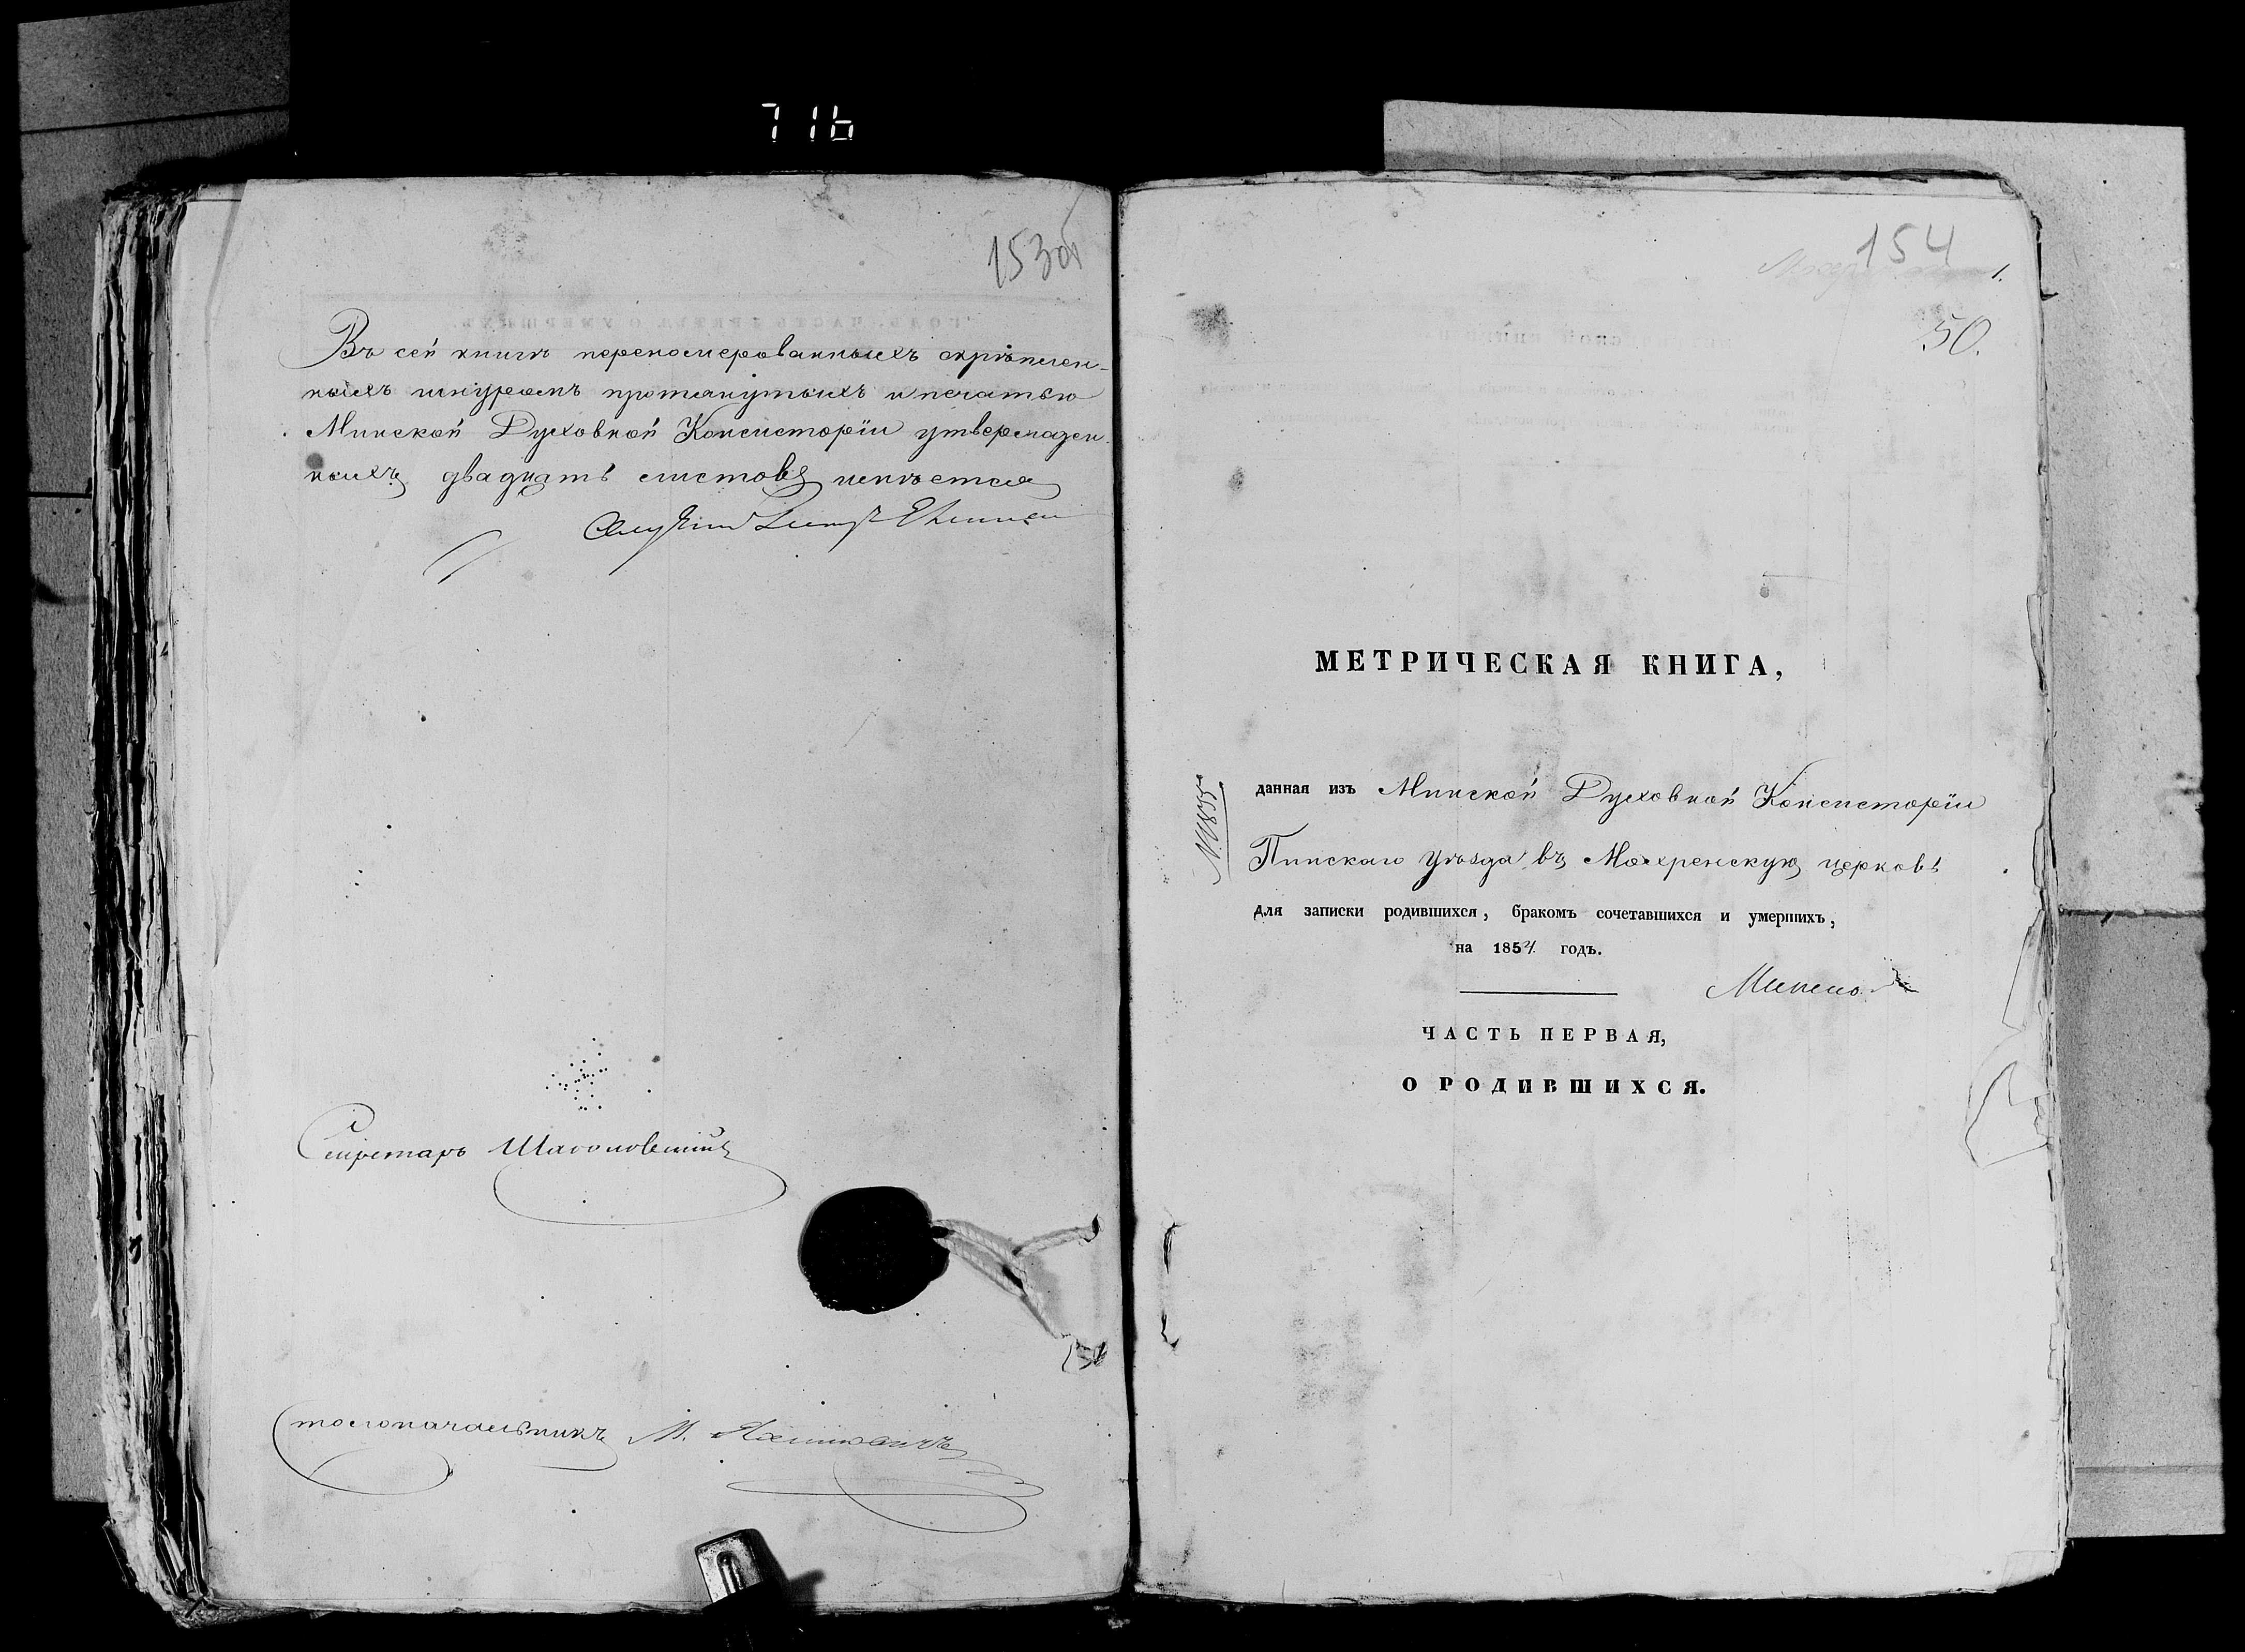 716
153об
Въ сей книгѣ перепомерованныхъ скрѣплен-
ныхъ шнуромъ протянутыхъ и печатью
Минской Духовной Консисторіи утвержден-
ныхъ двадцать листовъ имѣется
Секретарь
Столоначальникъ М.
154
1.
50.
МЕТРИЧЕСКАЯ КНИГА,
данная изъ Минской Духовной Консисторіи
Пинскаго уѣзда въ Мохренскую церковь
для записки родившихся, бракомъ сочетавшихся и умершихъ,
на 1854 годъ.
ЧАСТЬ ПЕРВАЯ,
О РОДИВШИХСЯ.